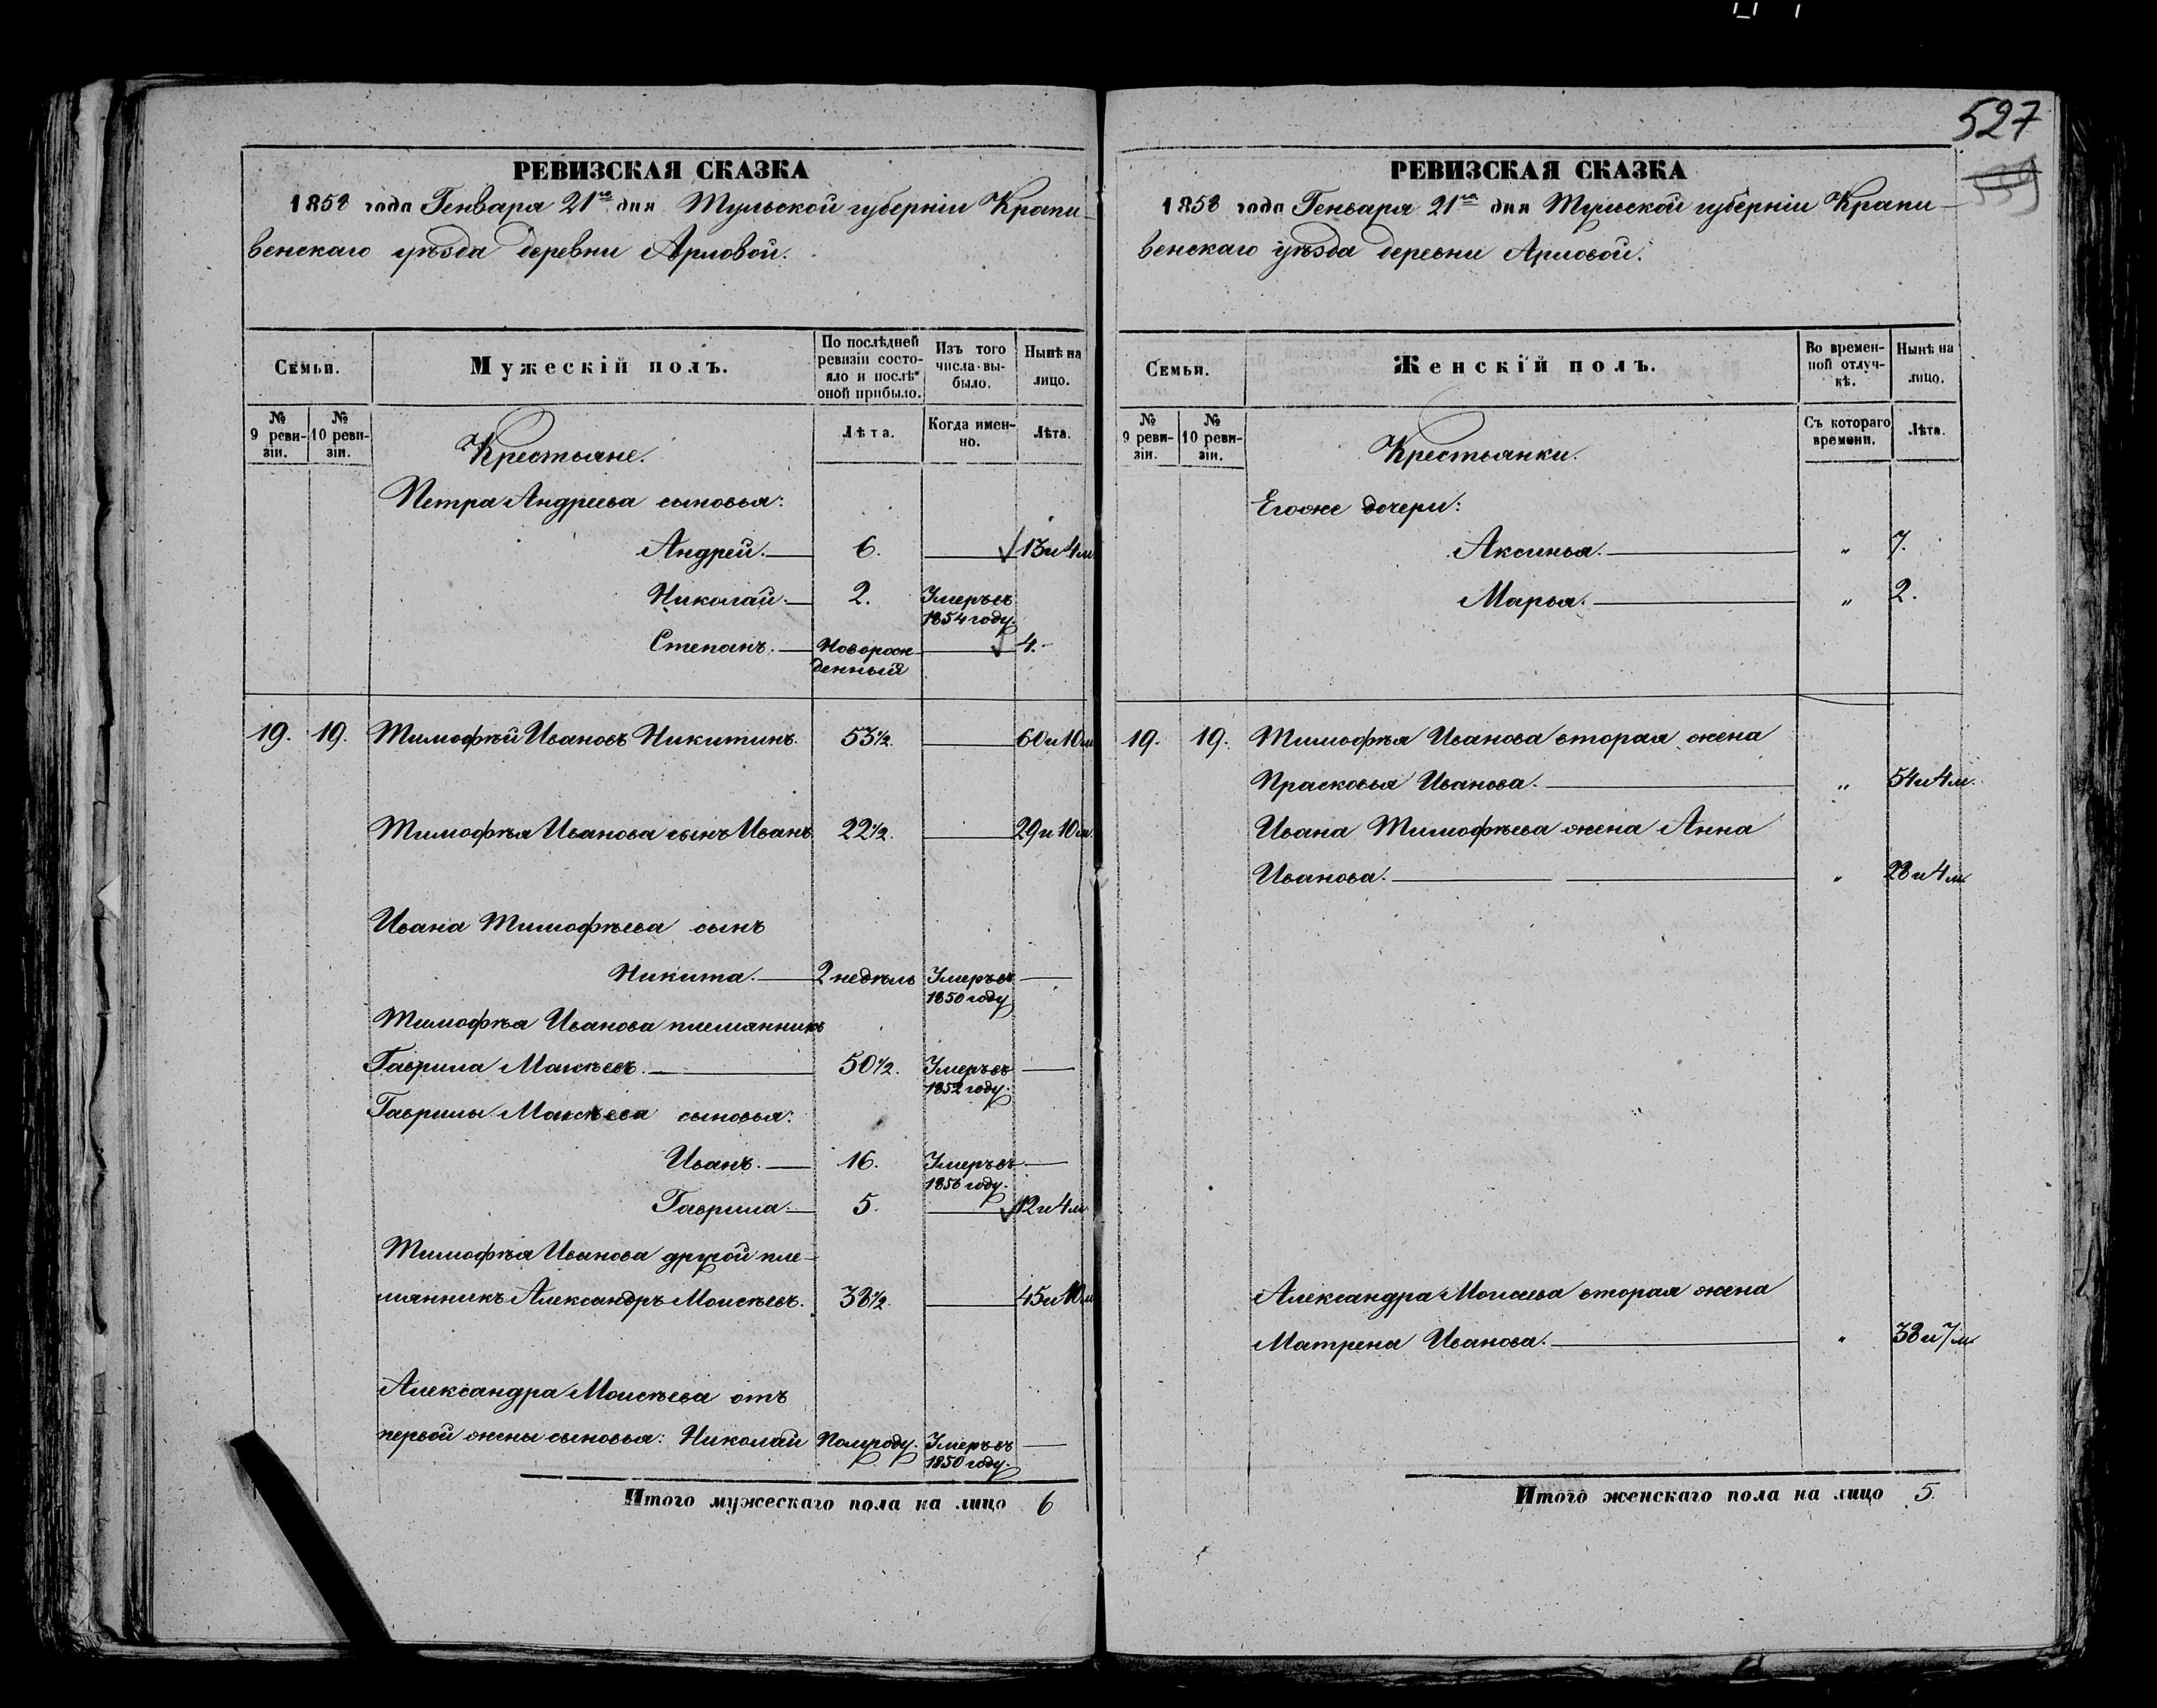 527
РЕВИЗСКАЯ СКАЗКА
1858 года Генваря 21го дня Тульской губерніи Крапи-
венскаго уѣзда деревни Арловой.
Семьи.
Мужескій полъ.
По послѣдней ревизіи состо-яло и послѣ оной прибыло.
Изъ того числа вы-было.
Нынѣ на лицо.
№ 9 реви-зіи.
№ 10 реви-зіи.
Лѣта.
Когда имен-но.
Лѣта.
Крестьяне.
Петра Андреева сыновья:
Андрей. 6. 13 и 4 м
Николай. 2. Умеръ въ 1854 году.
Степанъ. Новорож-денный 4.
19. 19. Тимофѣй Ивановъ Никитинъ. 53½. 60 и 10 м
Тимофѣя Иванова сынъ Иванъ 22½. 29 и 10 м
Ивана Тимофѣева сынъ
Никита. 2 недѣль Умеръ въ 1850 году
Тимофѣя Иванова племянникъ
Гаврила Моисѣевъ. 50½. Умеръ въ 1852 году.
Гаврилы Моисѣева сыновья:
Иванъ. 16. Умеръ въ 1856 году.
Гаврила. 5. 12 и 4 м.
Тимофѣя Иванова другой пле-
мянникъ Александръ Моисѣевъ. 38½. 45 и 10 м
Александра Моисѣева отъ
первой жены сыновья: Николай Полугоду. Умеръ въ 1850 году.
Итого мужескаго пола на лицо 6
РЕВИЗСКАЯ СКАЗКА
1858 года Генваря 21го дня Тульской губерніи Крапи-
венскаго уѣзда деревни Арловой.
Семьи.
Женскій полъ.
Во времен-ной отлуч-кѣ.
Нынѣ на лицо.
№ 9 реви-зіи.
№ 10 реви-зіи.
Съ котораго времени.
Лѣта.
Крестьянки.
Егоже дочери:
Аксинья. " 7.
Марья. " 2.
19. 19. Тимофѣя Иванова вторая жена
Прасковья Иванова. " 54 и 4 м.
Ивана Тимофѣева жена Анна
Иванова. " 28 и 4 м
Александра Моисеева вторая жена
Матрена Иванова. " 38 и 7 м
Итого женскаго пола на лицо 5.